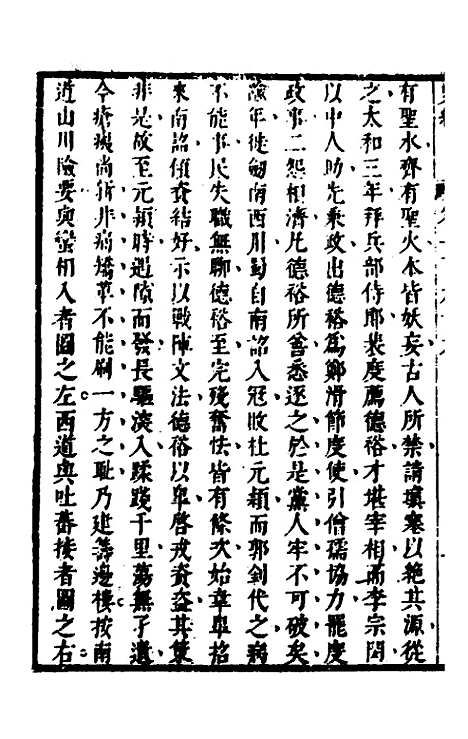 有聖水齊有聖火本皆妖妄古人所禁請塡塞以絕其源從
之太和三年拜兵部侍郎裴度薦德裕才堪宰相而李宗閔
以中人助先秉政出德裕爲鄭滑節度使引僧孺協力罷度
政事二怨相濟凡德裕所善悉逐之於是黨人牢不可破矣
踰年徙劒南西川蜀自南詔入寇敗杜元穎而郭釗代之病
不能事民失職無聊德裕至完殘奮怯皆有條次始韋臯招
來南詔傾資結好示以戰陣文法德裕以臯啓戎資盜其策
非是故至元穎時遇隙而發長驅深入蹂踐千里蕩無孑遺
今瘡痍尚新非痛矯革不能刷一方之恥乃建籌邊樓按南
道山川險要與蠻相入者圖之左西道與吐蕃接者圖之右